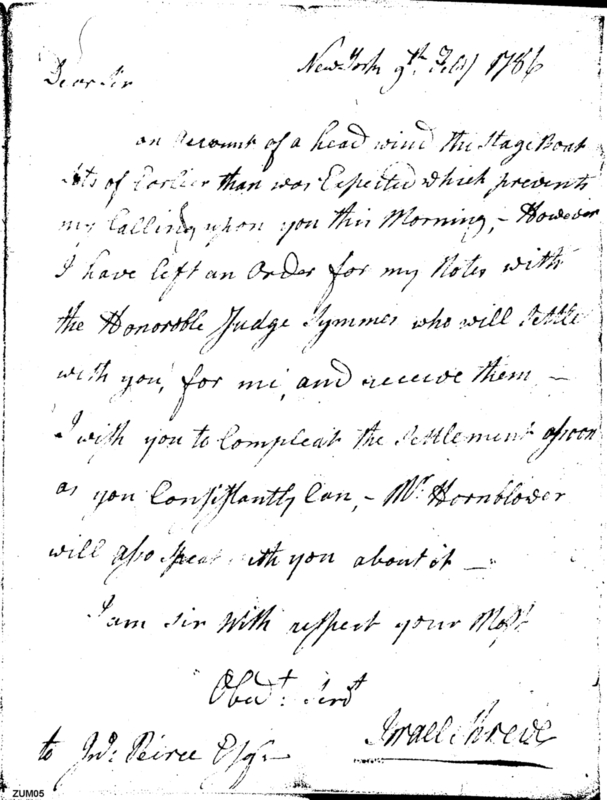 New York 9th. Feby 1786
Dear Sir
on Account of a head wind the Stage Boat
Sets of Earlier than was Expected which prevents
my Calling upon you this Morning, – However
I have left an Order for my Notes with
the Honorable Judge Symmes who will Settle
with you, for me, and receive them –
I wish you to Compleat the Settlement assoon
as you Consistantly Can, – Mr. Hornblower
will also Speak with you about it –
I am Sir With respect your Most.
Obedt. Servt
to Jno: Peirce Esqr.
Israel Shreve
ZUM05